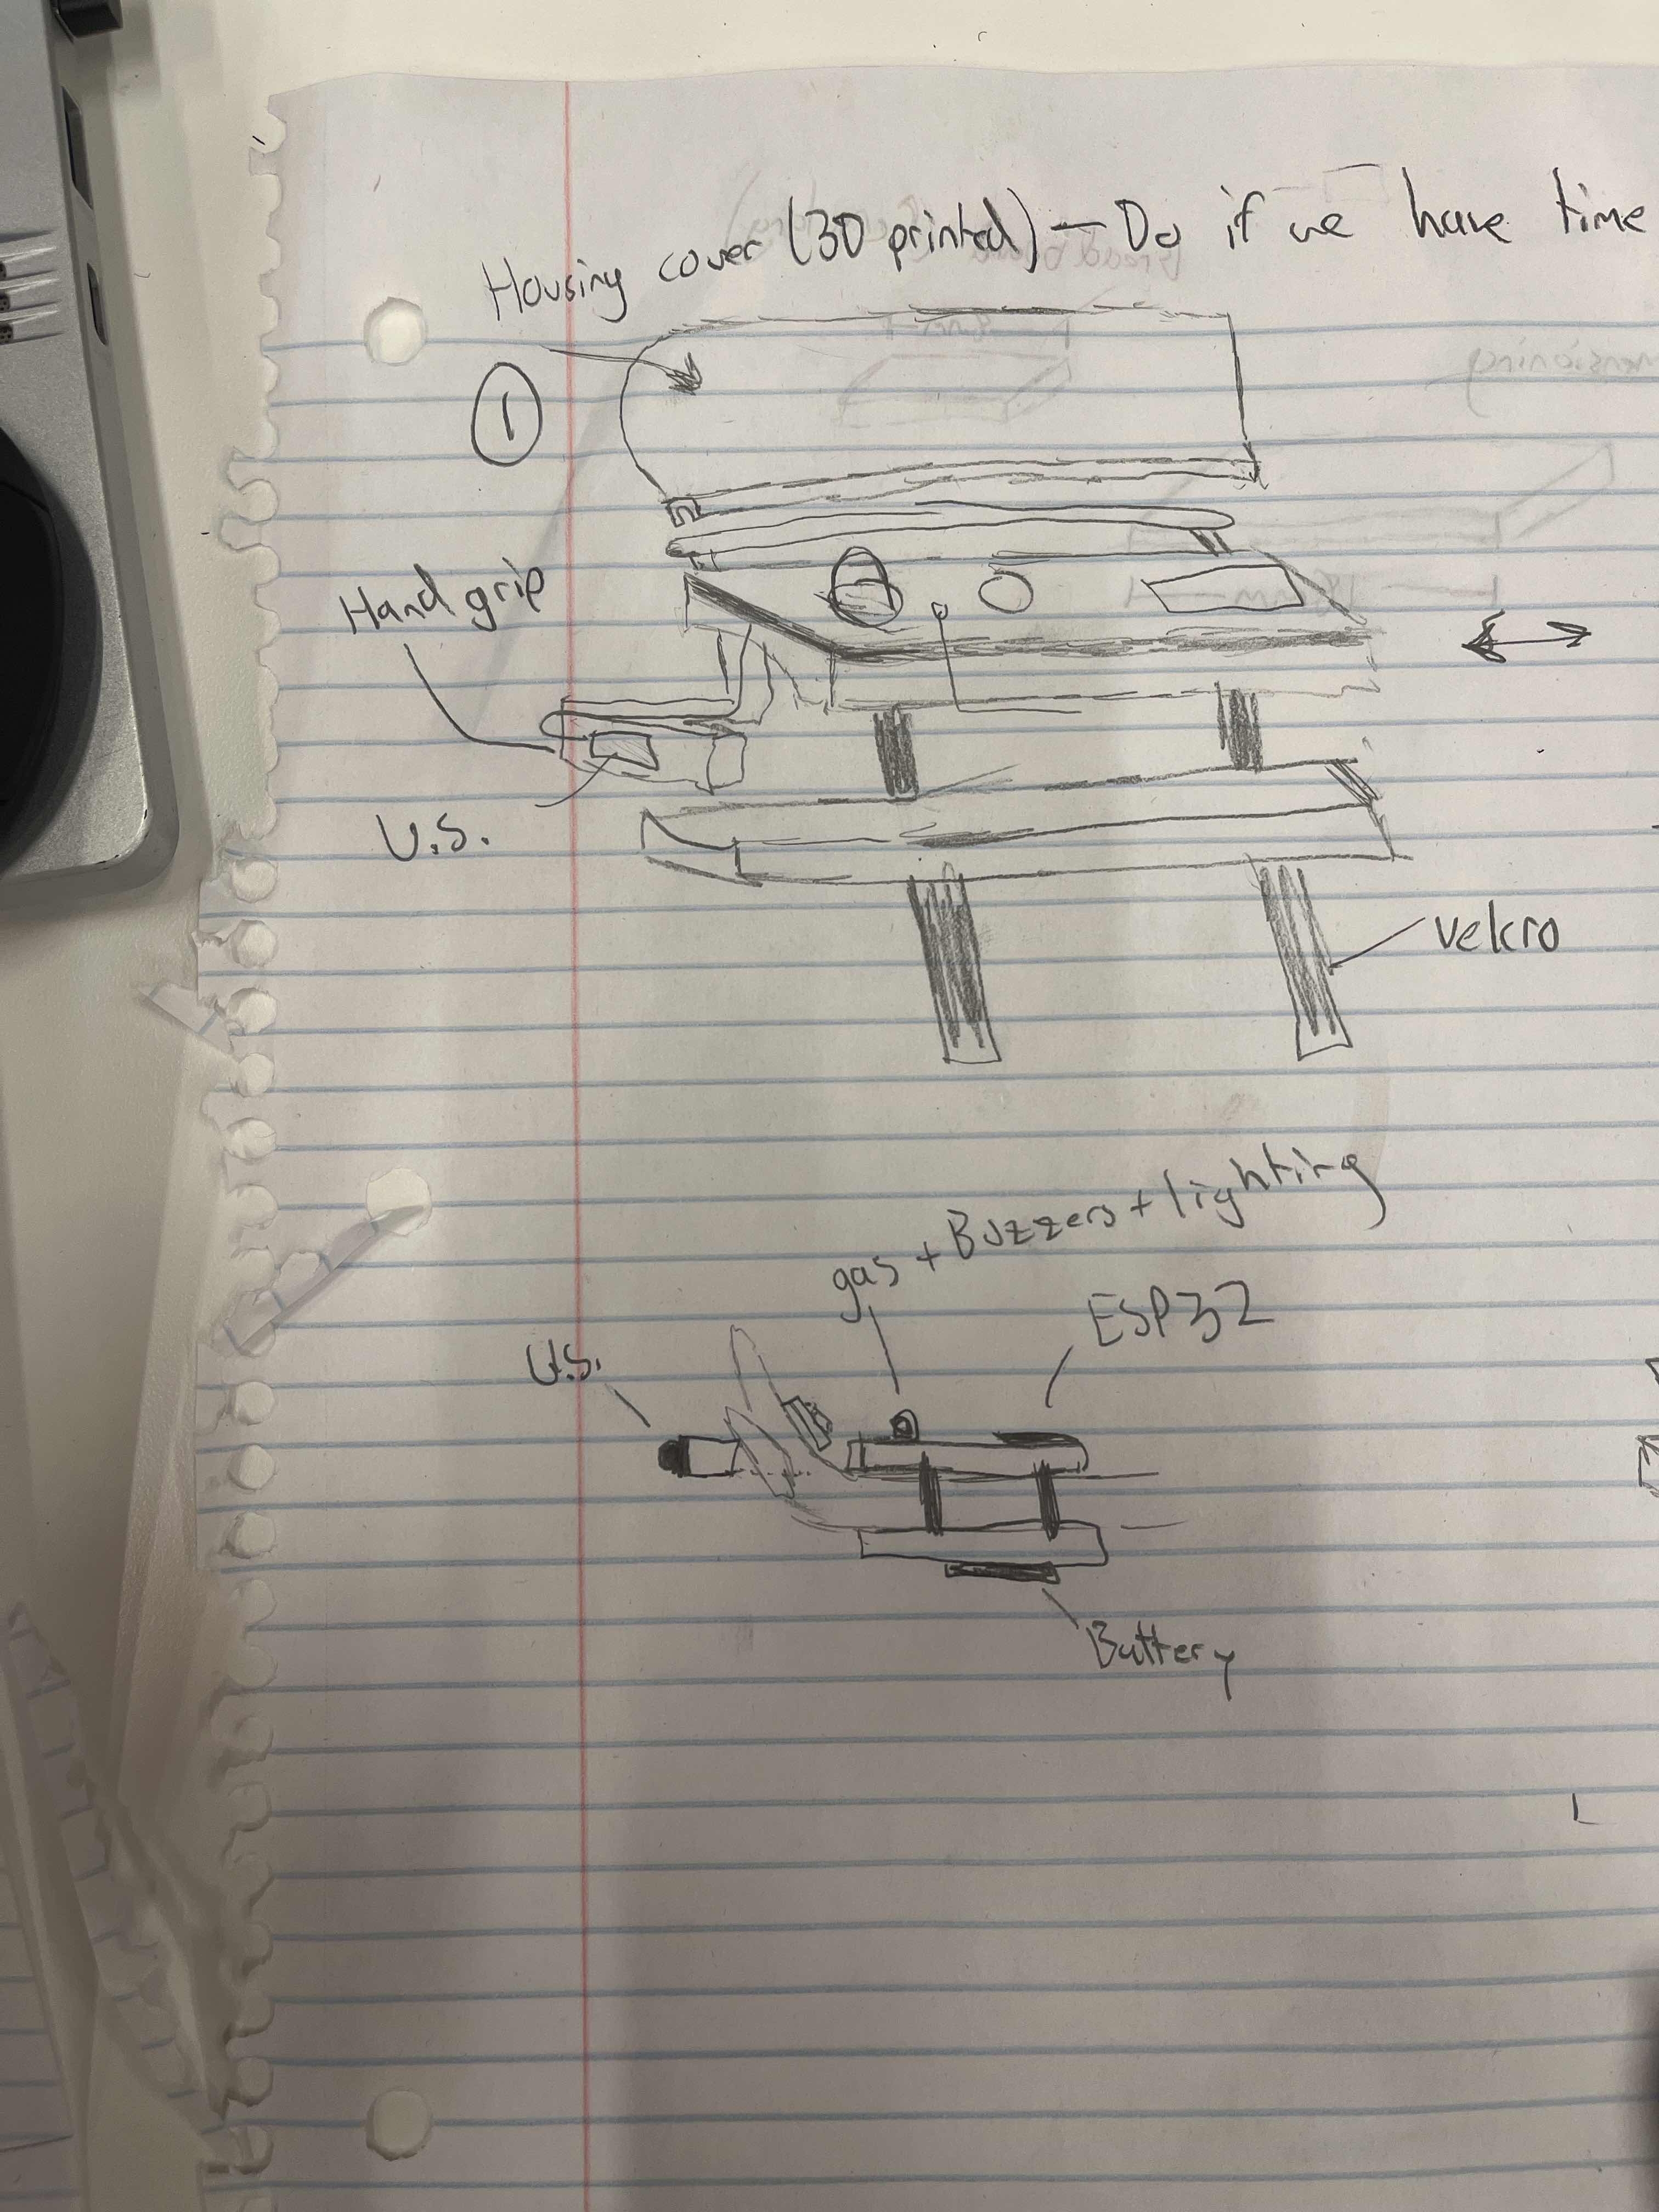 Housing cover (3D printed) — Do if we have time
①
Hand grip
U.S.
velcro
gas + Buzzers + lighting
ESP32
U.S.
Battery